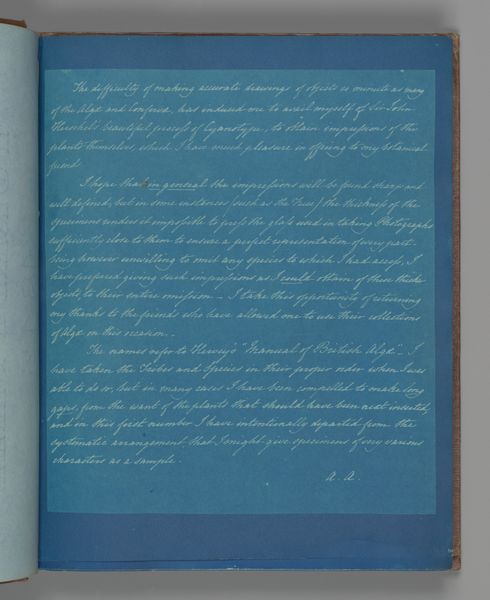 The difficulty of making accurate drawings of objects as minute as many
of the Algæ and Confervæ, has induced me to avail myself of Sir John
Herschel's beautiful process of Cyanotype, to obtain impressions of the
plants themselves, which I have much pleasure in offering to my botanical
friends.
I hope that in general the impressions will be found sharp and
well defined, but in some instances (such as the Fuci) the thickness of the
specimens renders it impossible to press the glass used in taking Photographs
sufficiently close to them to ensure a perfect representation of every part.
Being however unwilling to omit any species to which I had access, I
have preferred giving such impressions as I could obtain of these thick
objects, to their entire omission — I take this opportunity of returning
my thanks to the friends who have allowed me to use their collections
of Algæ on this occasion. —
The names refer to Harvey's "Manual of British Algæ" — I
have taken the Tribes and Species in their proper order when I was
able to do so, but in many cases I have been compelled to make long
gaps, from the want of the plants that should have been next inserted,
and in this first number I have intentionally departed from the
systematic arrangement that I might give specimens of very various
characters as a sample. —
A. A.